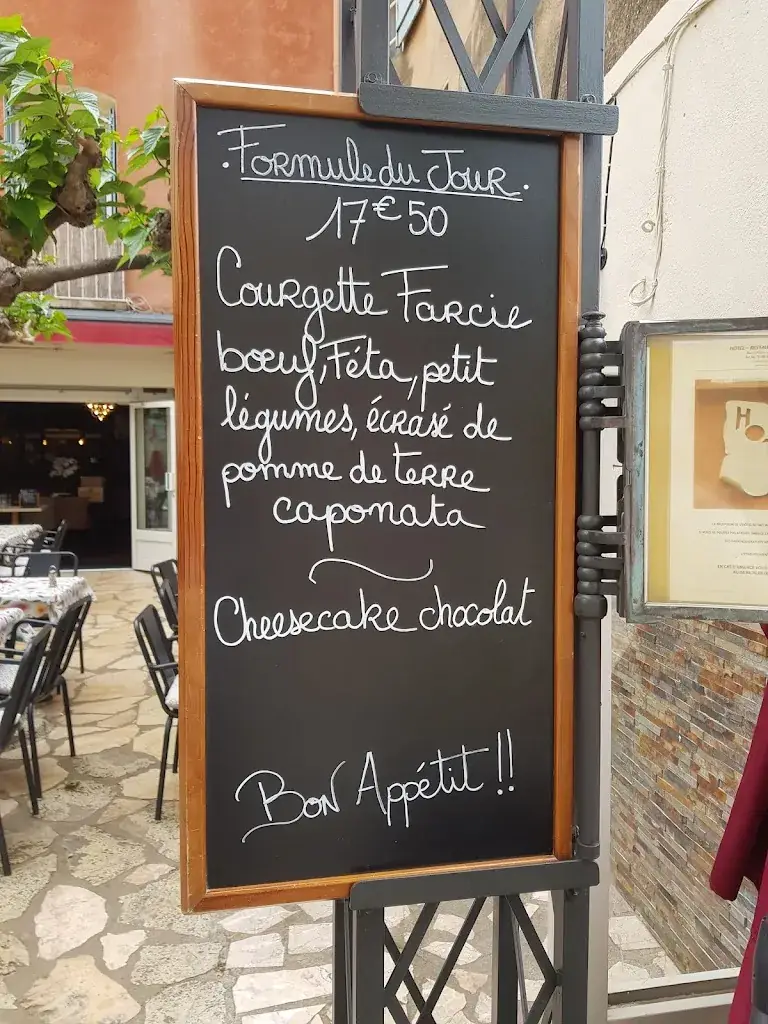 . Formule du Jour .
17€50
Courgette Farcie
bœuf, Féta, petit
légumes, écrasé de
pomme de terre
caponata
Cheesecake chocolat
Bon Appétit !!
H